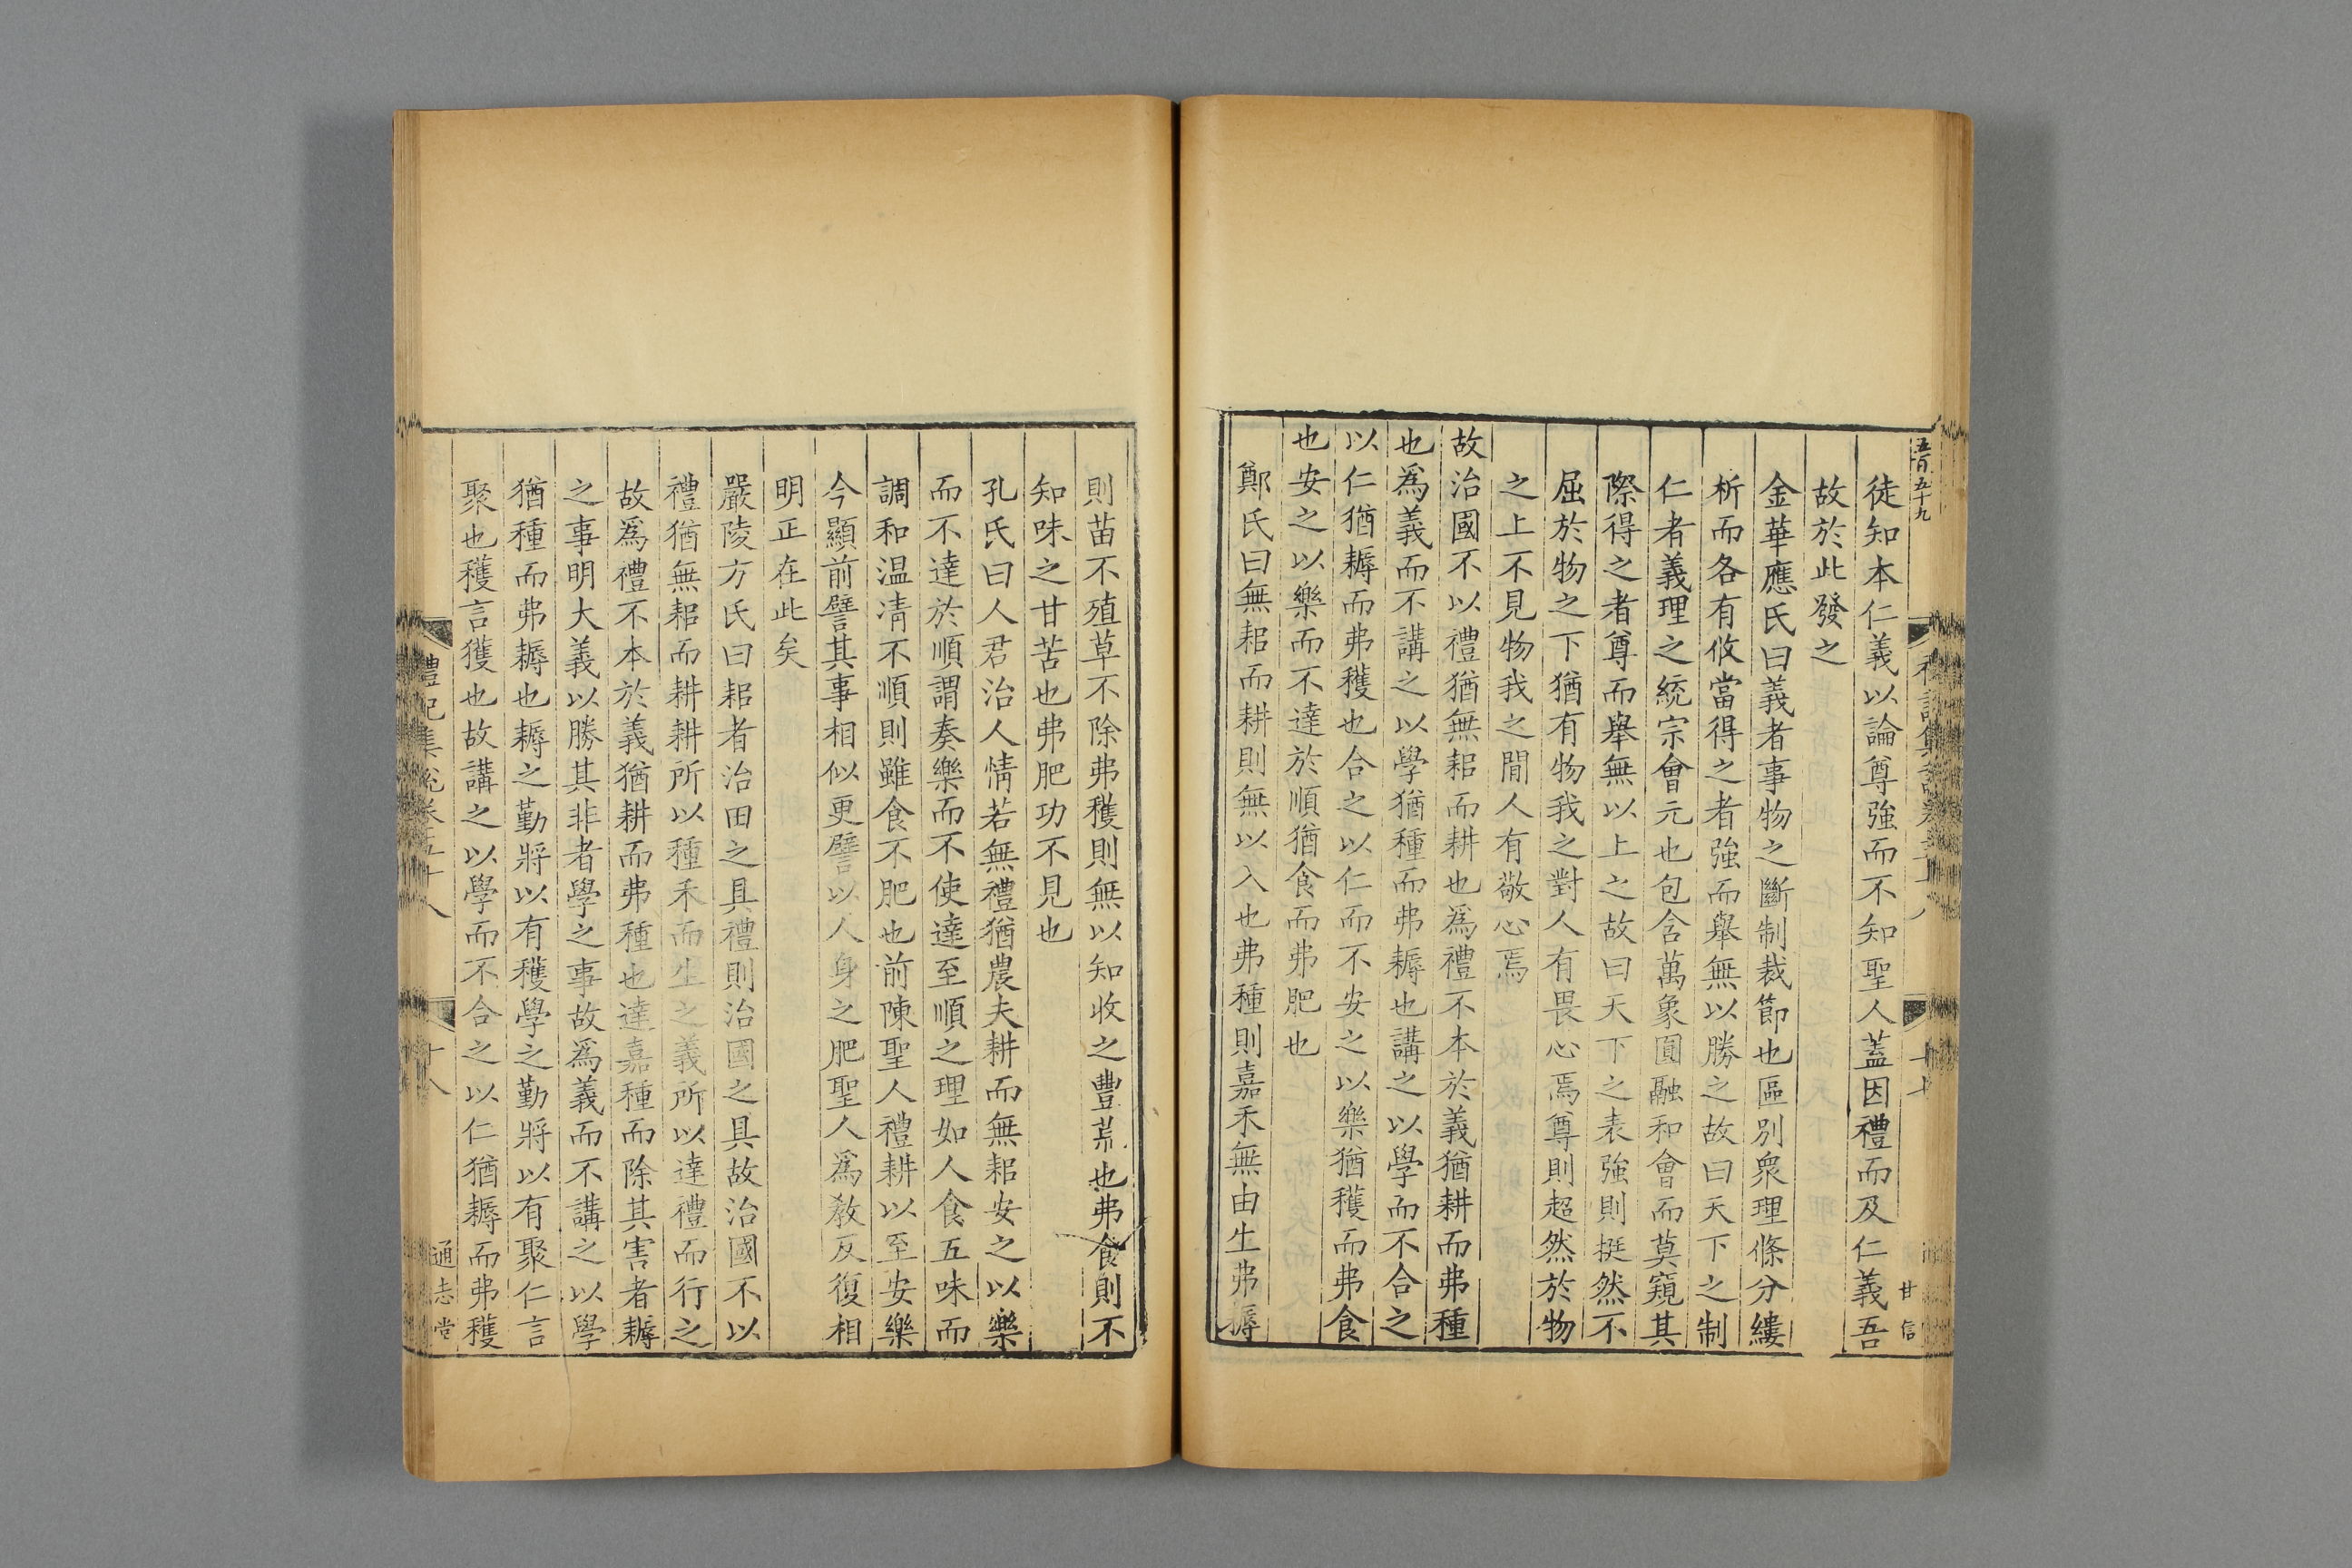 五百五十九
徒知本仁義以論尊強而不知聖人蓋因禮而及仁義吾
故於此發之
金華應氏曰義者事物之斷制裁節也區別衆理條分縷
析而各有攸當得之者強而舉無以勝之故曰天下之制
仁者義理之統宗會元也包含萬象圓融和會而莫窺其
際得之者尊而舉無以上之故曰天下之表強則挺然不
屈於物之下猶有物我之對人有畏心焉尊則超然於物
之上不見物我之間人有敬心焉
故治國不以禮猶無耜而耕也爲禮不本於義猶耕而弗種
也爲義而不講之以學猶種而弗耨也講之以學而不合之
以仁猶耨而弗穫也合之以仁而不安之以樂猶穫而弗食
也安之以樂而不達於順猶食而弗肥也
鄭氏曰無耜而耕則無以入也弗種則嘉禾無由生弗耨
甘信
則苗不殖草不除弗穫則無以知收之豐荒也弗食則不
知味之甘苦也弗肥功不見也
孔氏曰人君治人情若無禮猶農夫耕而無耜安之以樂
而不達於順謂奏樂而不使達至順之理如人食五味而
調和温凊不順則雖食不肥也前陳聖人禮耕以至安樂
今顯前譬其事相似更譬以人身之肥聖人爲教反復相
明正在此矣
嚴陵方氏曰耜者治田之具禮則治國之具故治國不以
禮猶無耜而耕耕所以種禾而生之義所以達禮而行之
故爲禮不本於義猶耕而弗種也達嘉種而除其害者耨
之事明大義以勝其非者學之事故爲義而不講之以學
猶種而弗耨也耨之勤將以有穫學之勤將以有聚仁言
聚也穫言獲也故講之以學而不合之以仁猶耨而弗穫
禮記集說卷五十八
十八
通志堂